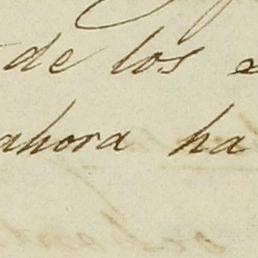 de los
ahora ha